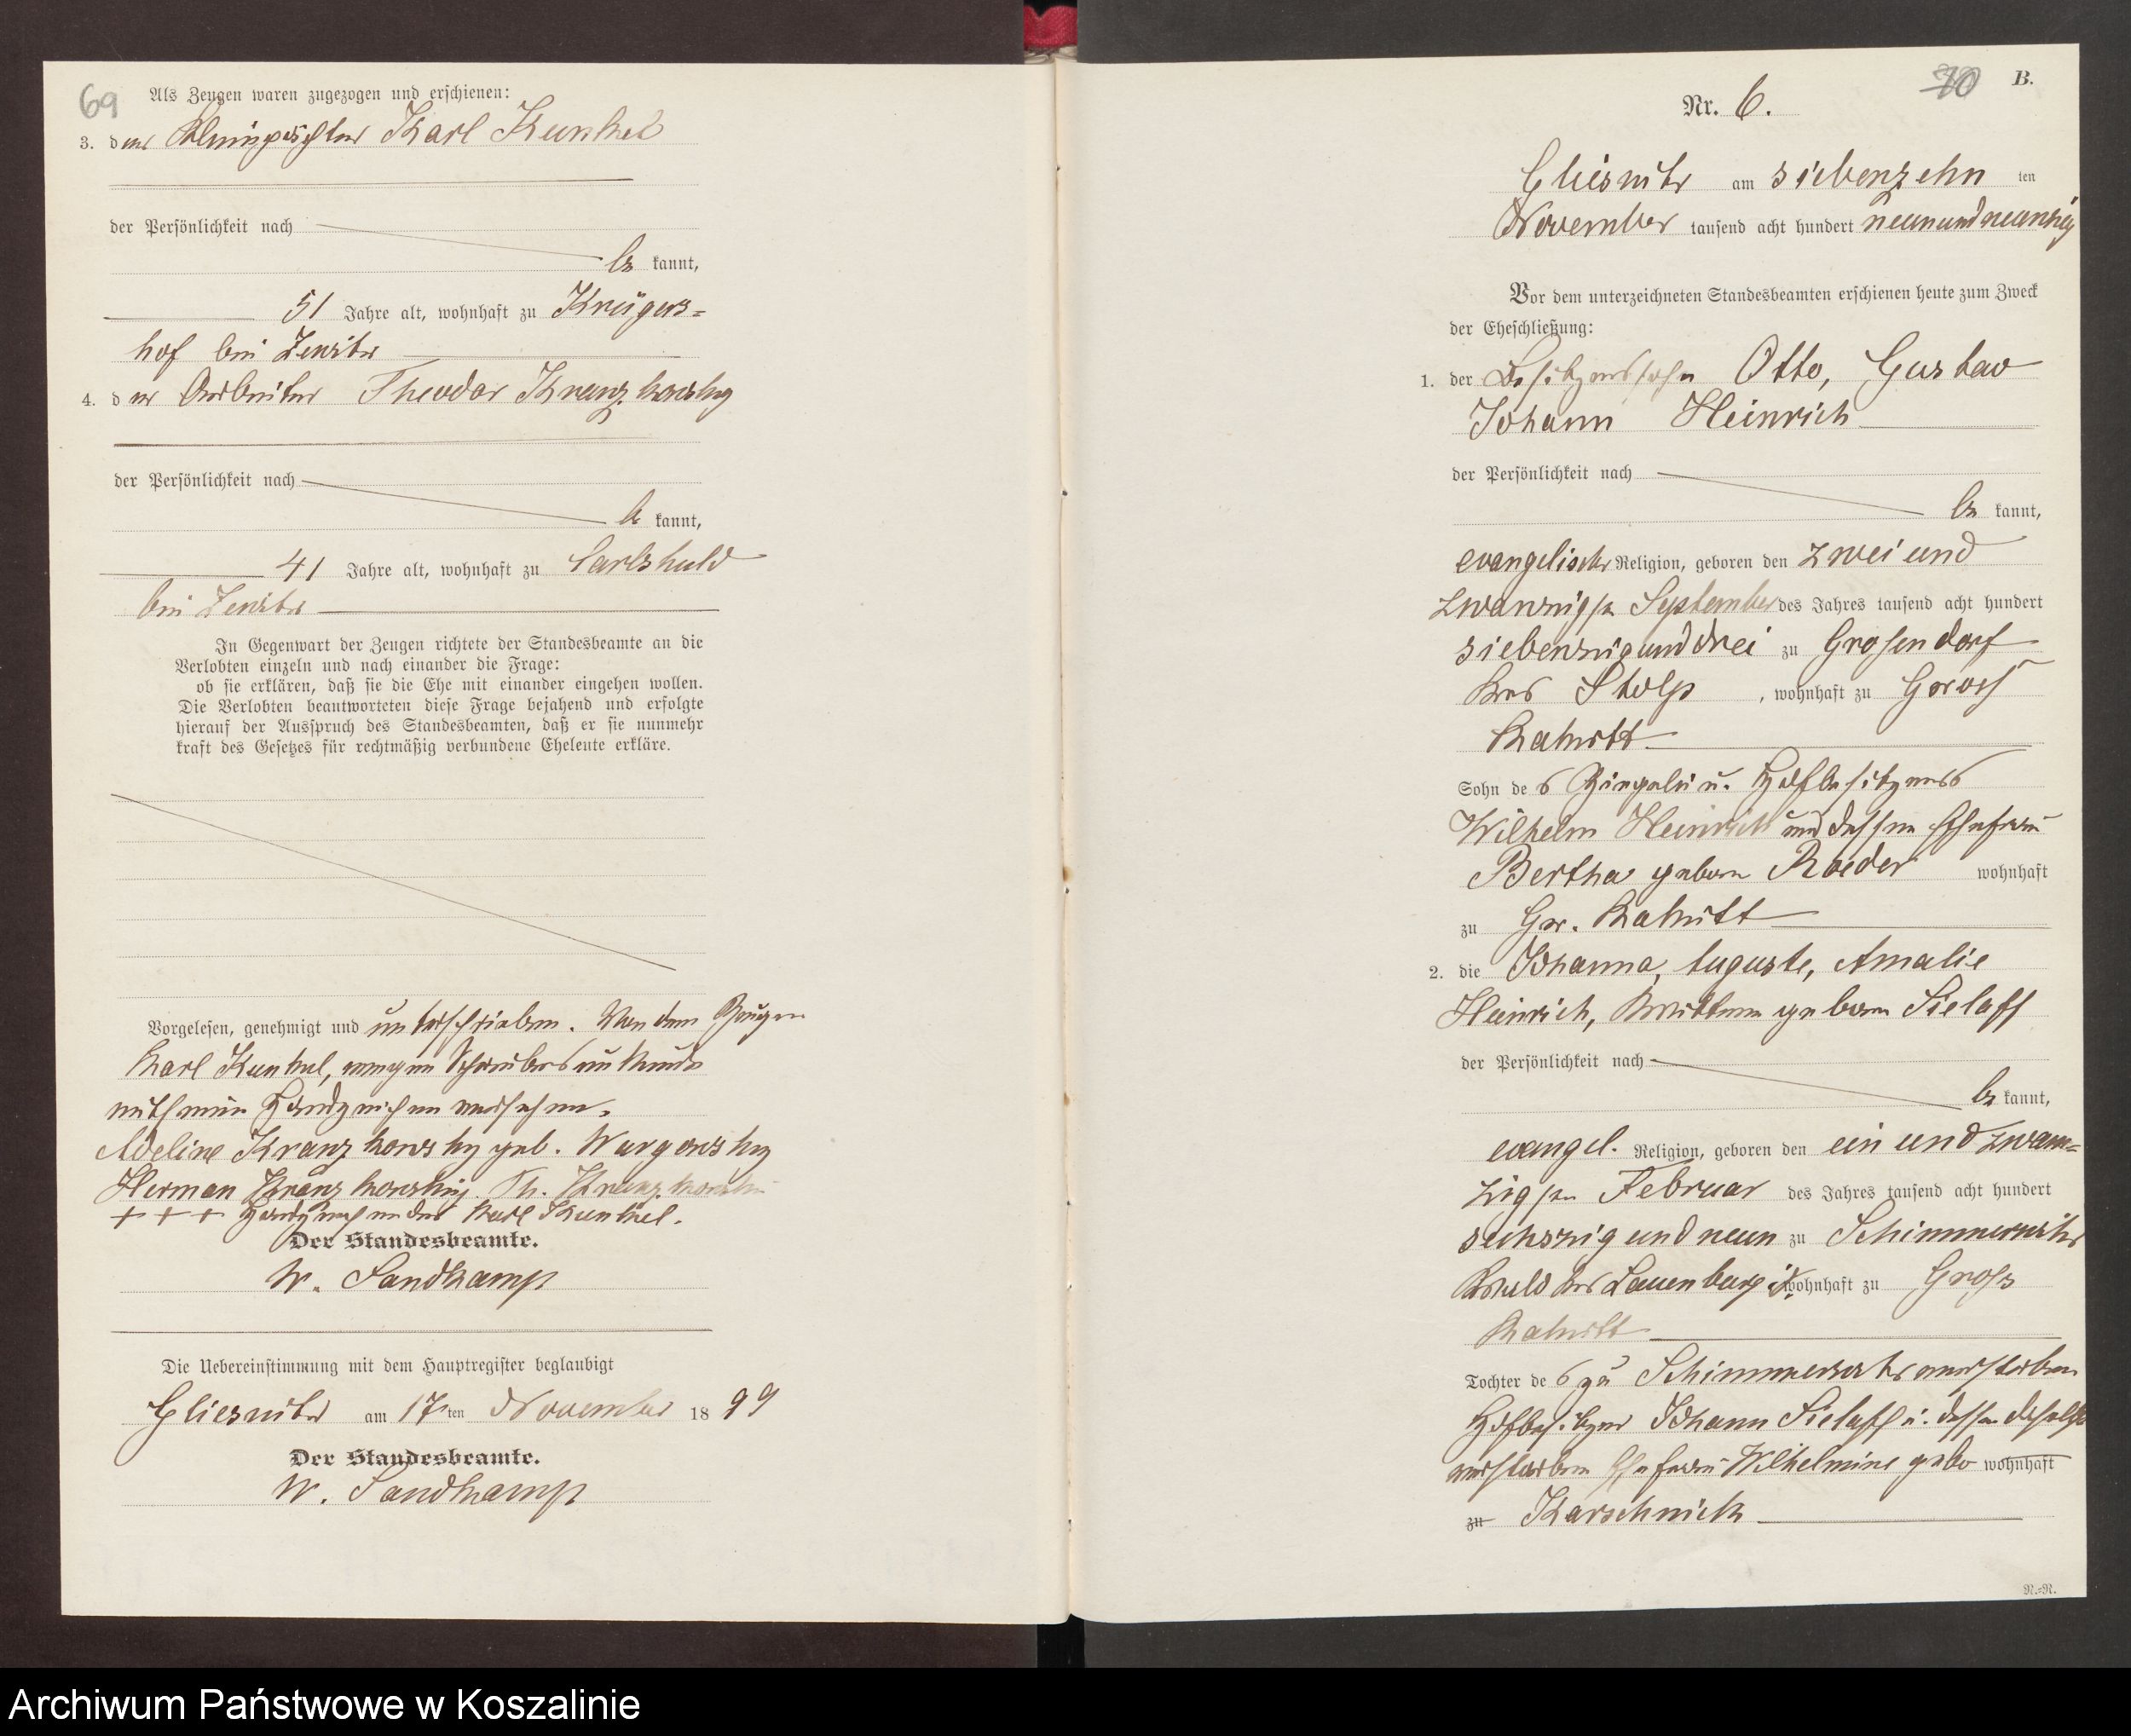 69
Als Zeugen waren zugezogen und erschienen:
3. der Kleinpächter Karl Kunkel
der Persönlichkeit nach
be kannt,
51 Jahre alt, wohnhaft zu Krügers=
hof bei Zewitz
4. der Arbeiter Theodor Kranzkowsky
der Persönlichkeit nach
be kannt,
41 Jahre alt, wohnhaft zu Carlshuld
bei Zewitz
In Gegenwart der Zeugen richtete der Standesbeamte an die
Verlobten einzeln und nach einander die Frage:
ob sie erklären, daß sie die Ehe mit einander eingehen wollen.
Die Verlobten beantworteten diese Frage bejahend und erfolgte
hierauf der Ausspruch des Standesbeamten, daß er sie nunmehr
kraft des Gesetzes für rechtmäßig verbundene Eheleute erkläre.
Vorgelesen, genehmigt und unterschrieben. Von dem Zeugen
Karl Kunkel, wegen Schreibensunkunde
mit Handzeichen versehen.
Adeline Kranzkowsky geb. Wargowsky
Herman Kranzkowsky Th. Kranzkowski
+ + + Handzeichen des Karl Kunkel.
Der Standesbeamte.
W. Sandkamp
Die Uebereinstimmung mit dem Hauptregister beglaubigt
Gliesnitz am 17ten November 1899
Der Standesbeamte.
W. Sandkamp
70 B.
Nr. 6.
Gliesnitz am siebenzehn ten
November tausend acht hundert neunundneunzig
Vor dem unterzeichneten Standesbeamten erschienen heute zum Zweck
der Eheschließung:
1. der Besitzerssohn Otto, Gustav
Johann Heinrich
der Persönlichkeit nach
be kannt,
evangelischer Religion, geboren den zwei und
zwanzigsten September des Jahres tausend acht hundert
siebenzig und drei zu Grosendorf
Kreis Stolp, wohnhaft zu Gross
Rakitt
Sohn des Ziegelei u. Hofbesitzers
Wilhelm Heinrich und dessen Ehefrau
Bertha geboren Roeder wohnhaft
zu Gr. Rakitt
2. die Johanna, Auguste, Amalie
Heinrich, Wittwe geboren Sielaff
der Persönlichkeit nach
be kannt,
evangel. Religion, geboren den ein und zwan=
zigsten Februar des Jahres tausend acht hundert
sechszig und neun zu Schimmerwitz
Kreis Lauenburg wohnhaft zu Gross
Rakitt
Tochter des zu Schimmerwitz verstorbenen
Hofbesitzer Johann Sielaff u. dessen daselbst
verstorbene Ehefrau Wilhelmine gebo wohnhaft
zu Karschnick
R.=R.
Archiwum Państwowe w Koszalinie